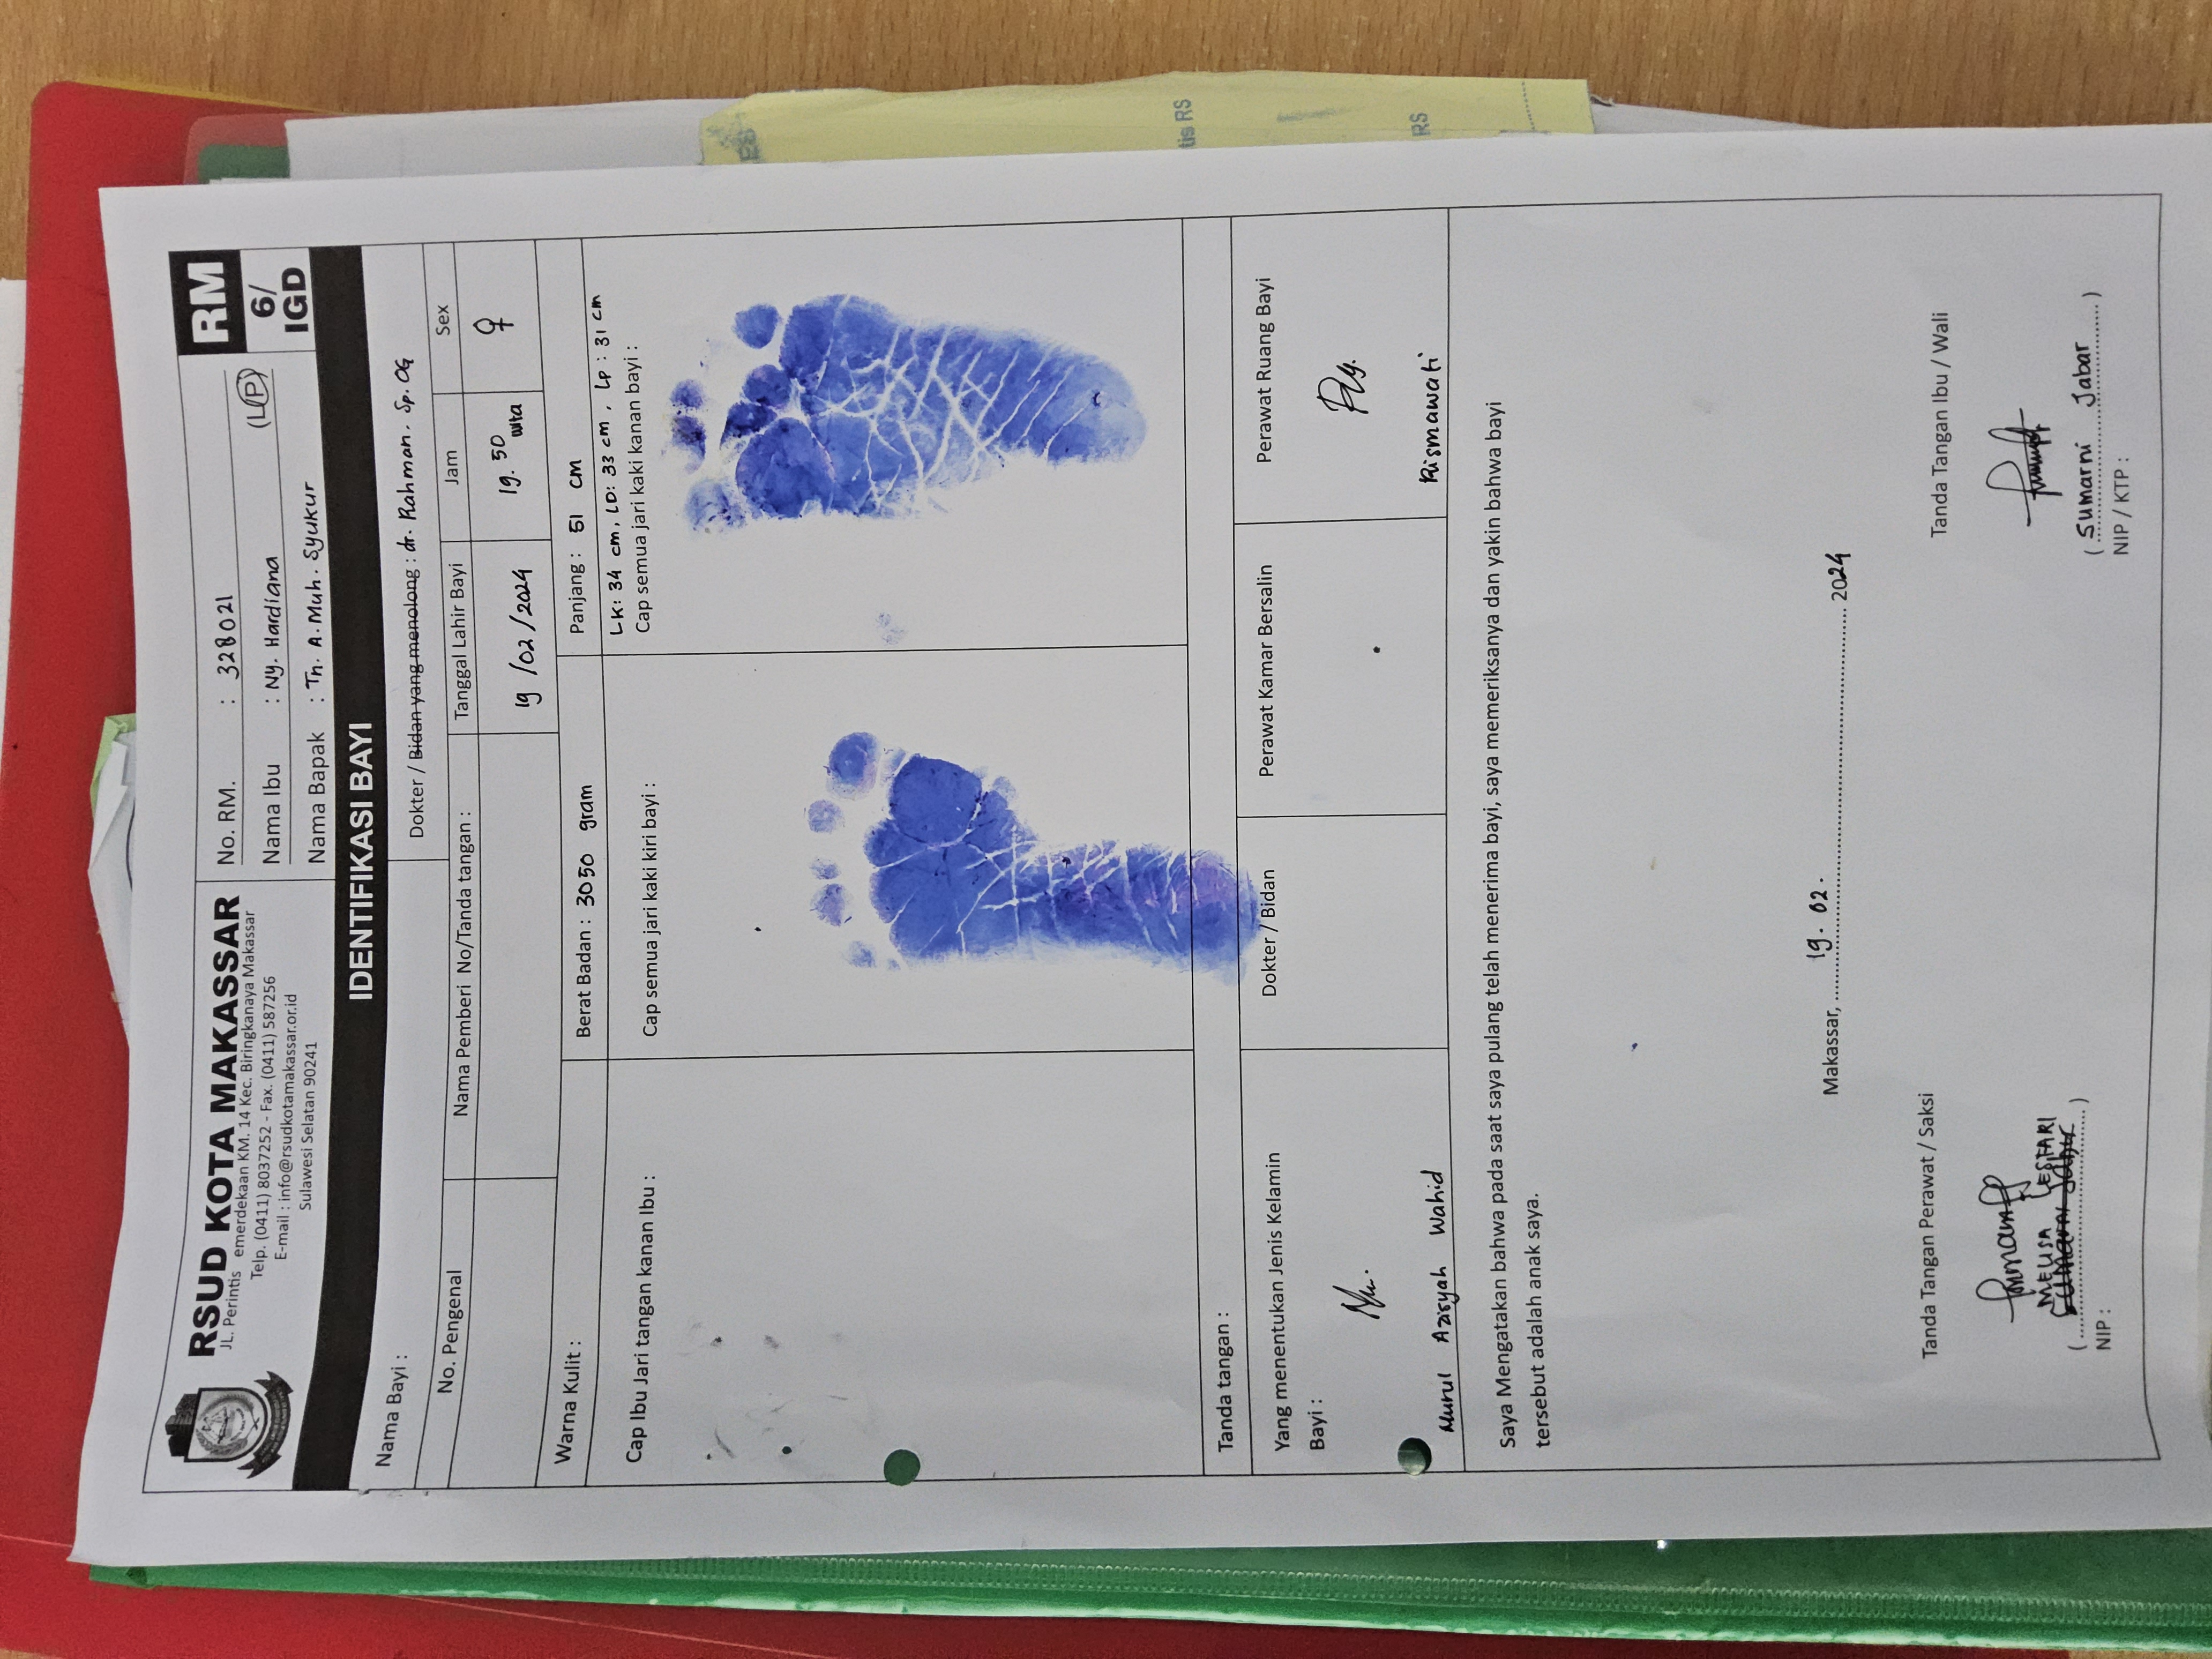 RSUD KOTA MAKASSAR
JL. Perintis emerdekaan KM. 14 Kec. Biringkanaya Makassar
Telp. (0411) 8037252 - Fax. (0411) 587256
E-mail : info@rsudkotamakassar.or.id
Sulawesi Selatan 90241
No. RM. : 328021
Nama Ibu : Ny. Hardiana (L/P)
Nama Bapak : Tn. A. Muh. Syukur
RM
6/
IGD
IDENTIFIKASI BAYI
Nama Bayi :
Dokter / Bidan yang menolong : dr. Rahman. Sp. OG
No. Pengenal
Nama Pemberi No/Tanda tangan :
Tanggal Lahir Bayi
Jam
Sex
19 /02 /2024
19. 50 wita
♀
Warna Kulit :
Berat Badan : 3050 gram
Panjang : 51 cm
LK: 34 cm, LD: 33 cm, Lp : 31 cm
Cap Ibu Jari tangan kanan Ibu :
Cap semua jari kaki kiri bayi :
Cap semua jari kaki kanan bayi :
Tanda tangan :
Yang menentukan Jenis Kelamin
Bayi :
Dokter / Bidan
Perawat Kamar Bersalin
Perawat Ruang Bayi
Nurul Azisyah Wahid
Rismawati
Saya Mengatakan bahwa pada saat saya pulang telah menerima bayi, saya memeriksanya dan yakin bahwa bayi
tersebut adalah anak saya.
Makassar, 19. 02. 2024
Tanda Tangan Perawat / Saksi
Tanda Tangan Ibu / Wali
MELISA LESTARI
(Sumarni Jabar)
NIP :
( Sumarni Jabar )
NIP / KTP :
tis RS
RS